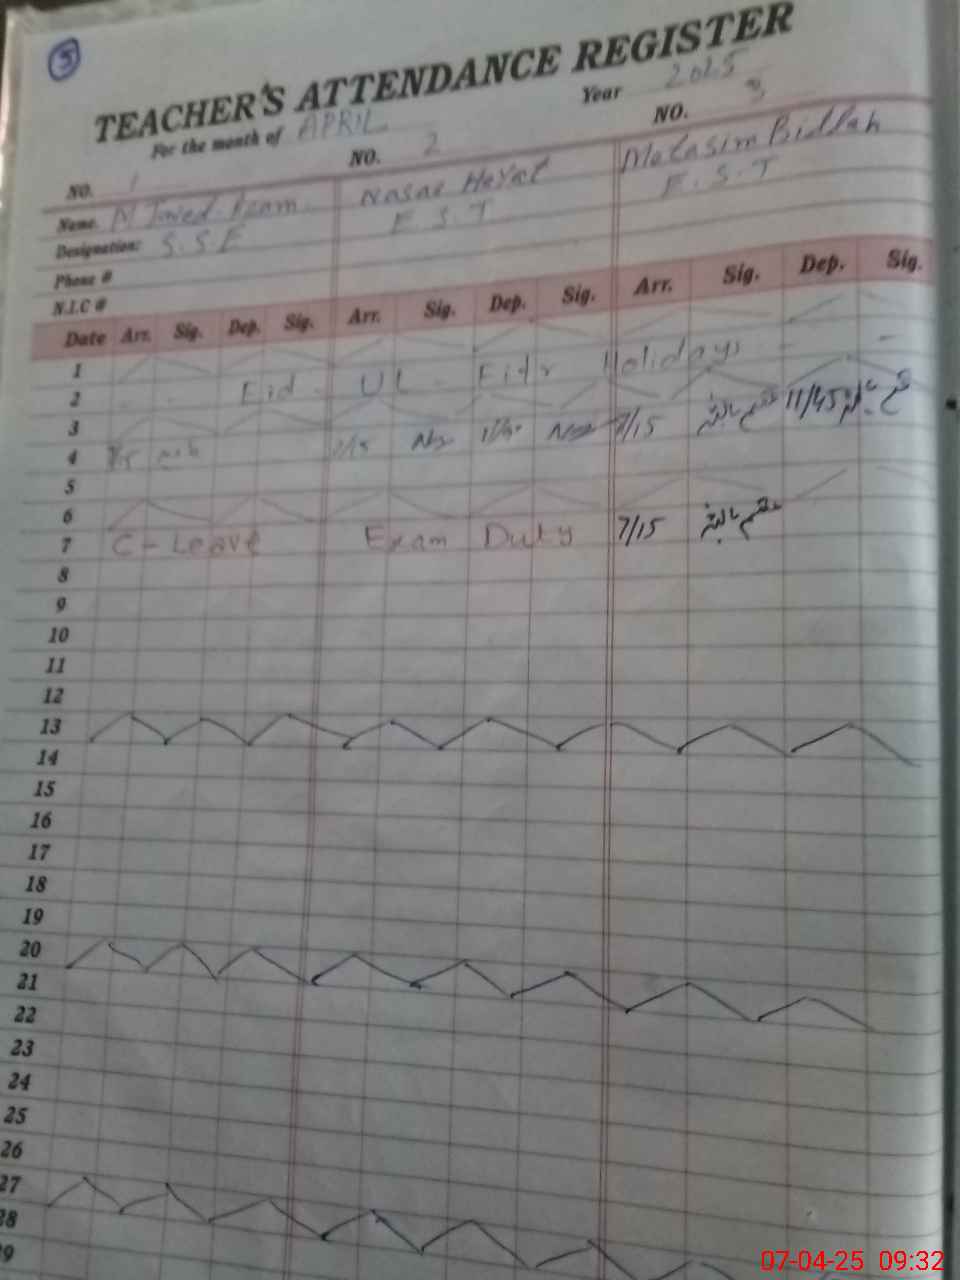 5
TEACHER'S ATTENDANCE REGISTER
For the month of APRIL Year 2025
NO. 1 NO. 2 NO. 3
Name. M Javed Azam Nasar Hayat Motasim Billah
Designation: S.S.E E.S.T E.S.T
Phone #
N.I.C #
Date Arr. Sig. Dep. Sig. Arr. Sig. Dep. Sig. Arr. Sig. Dep. Sig.
1
2 Eid UL Fitr Holidays
3
4 7/15 7/15 7/15 11/45
5
6
7 C-Leave Exam Duty 7/15
8
9
10
11
12
13
14
15
16
17
18
19
20
21
22
23
24
25
26
27
28
29
07-04-25 09:32